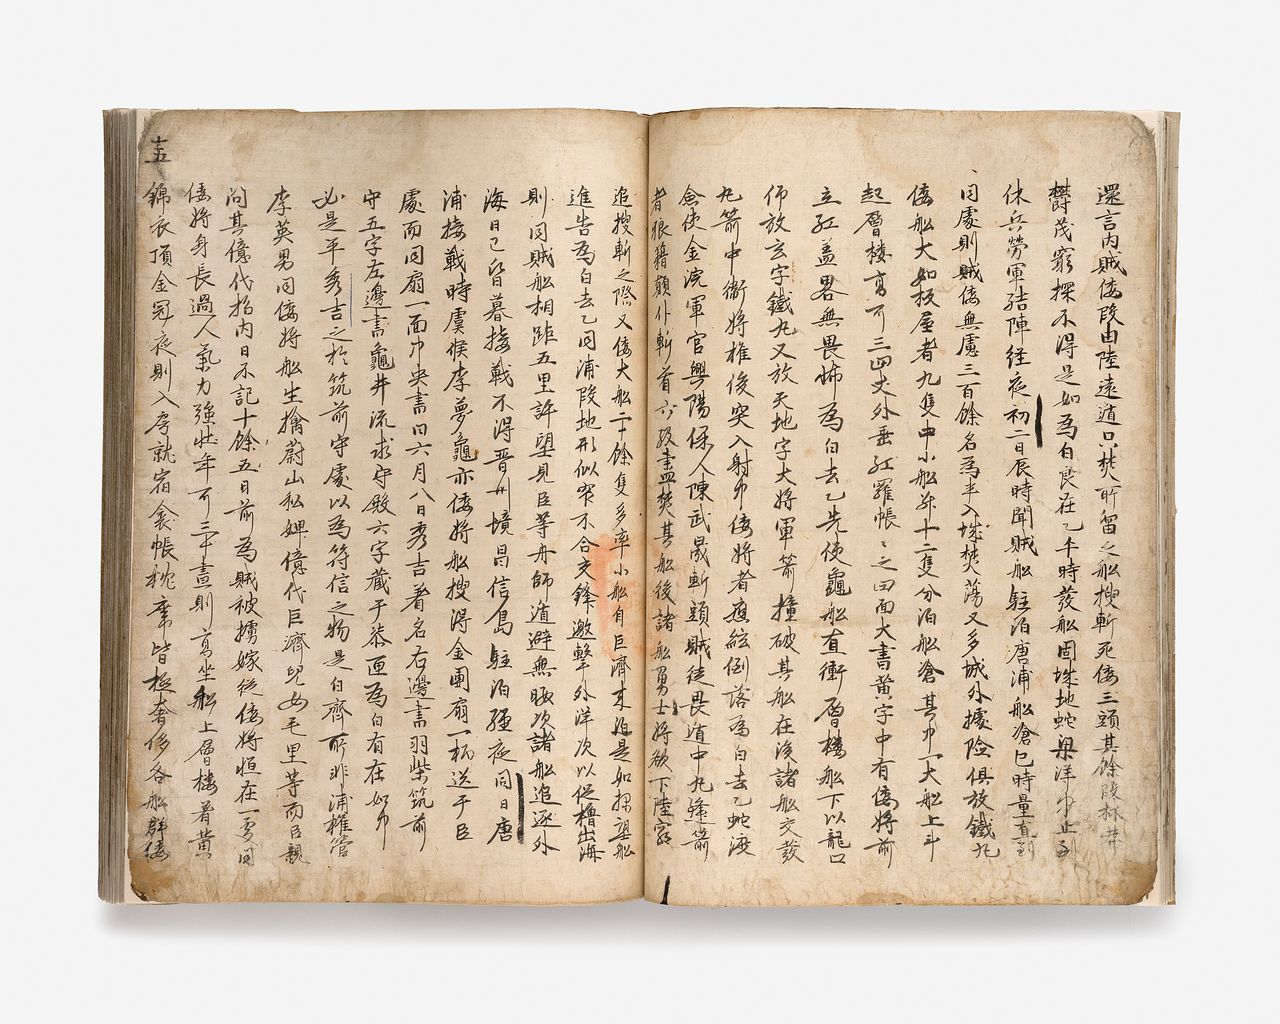 還言內賊倭段由陸遠逃口焚所留之船搜斬死倭三頭其餘段林木
欝茂窮探不得是如為白良在乙午時發船固城地蛇梁洋中止到
休兵勞軍結陣經夜初二日辰時聞賊船駐泊唐浦船滄巳時量直到
同處則賊倭無慮三百餘名為半入城焚蕩又多城外據險俱放鐵丸
倭船大如板屋者九隻中小船并十二隻分泊船滄其中一大船上斗
起層樓高可三四丈外垂紅羅帳〻之四面大書黃字中有倭將前
立紅盖畧無畏怖為白去乙先使龜船直衝層樓船下以龍口
仰放玄字鐵丸又放天地字大將軍箭撞破其船在後諸船交發
丸箭中衛將權俊突入射中倭將者應絃倒落為白去乙蛇渡
僉使金浣軍官興陽保人陳武晟斬頭賊徒畏遁中丸逢箭
者狼籍顛仆斬首六級盡焚其船後諸船勇士將欲下陸窮
追搜斬之際又倭大船二十餘隻多率小船自巨濟來泊是如探望船
進告為白去乙同浦段地形似窄不合交鋒邀擊外洋次以促櫓出海
則同賊船相距五里許望見臣等舟師遁避無暇次諸船追逐外
海日已昏暮接戰不得晋州境昌信島駐泊經夜同日唐
浦接戰時虞候李夢龜亦倭將船搜得金團扇一柄送于臣
處而同扇一面中央書曰六月八日秀吉着名右邊書羽柴筑前
守五字左邊書龜井流求守殿六字藏于柒匣為白有在如中
必是平秀吉之於筑前守處以為符信之物是白齊所非浦權管
李英男同倭將船生擒蔚山私婢億代巨濟兒女毛里等而臣親
問其億代招內日不記十餘五日前為賊被擄嫁從倭將恒在一處同
倭將身長過人氣力強壯年可三十晝則高坐船上層樓着黃
錦衣頂金冠夜則入房就宿衾帳枕席皆極奢侈各船群倭
十五